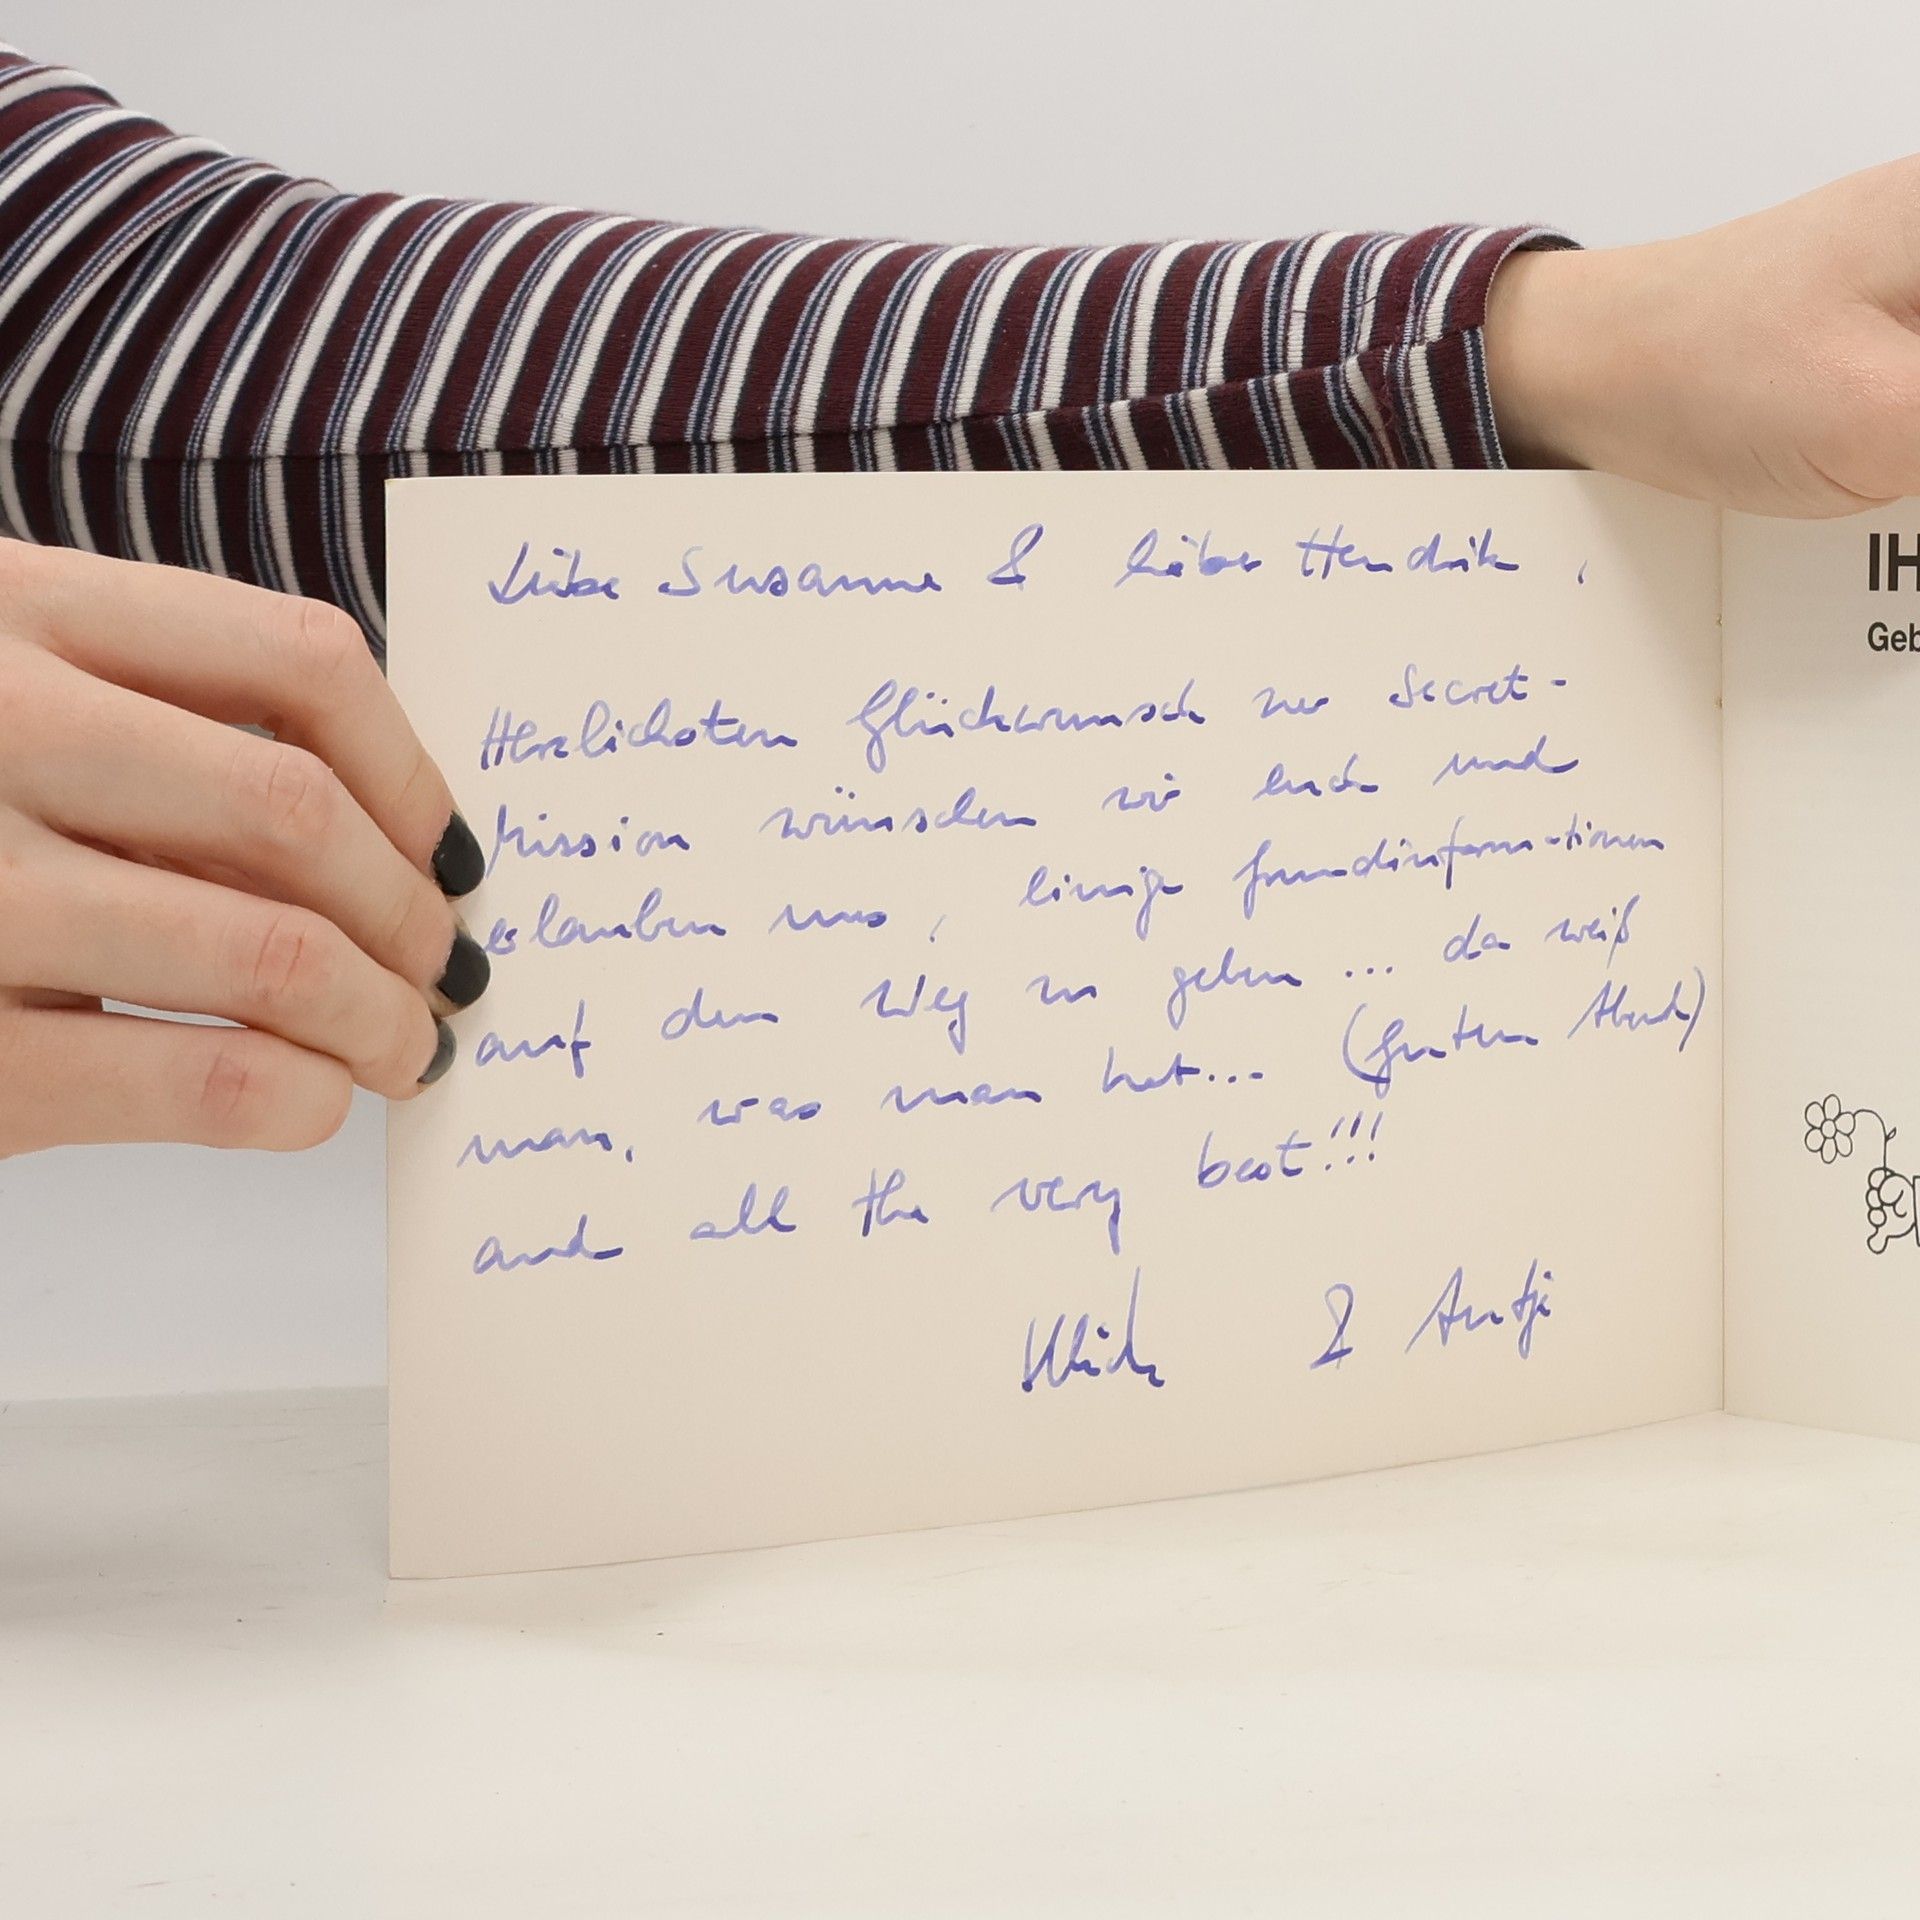 Liebe Susanne & lieber Hendrik,
Herzlichsten Glückwunsch zur Secret-
Mission wünschen wir euch und
erlauben uns, einige Grundinformationen
auf den Weg zu geben... da weiß
man, was man hat... (Guten Abend)
and all the very best!!!
& Antje
IH
Geb